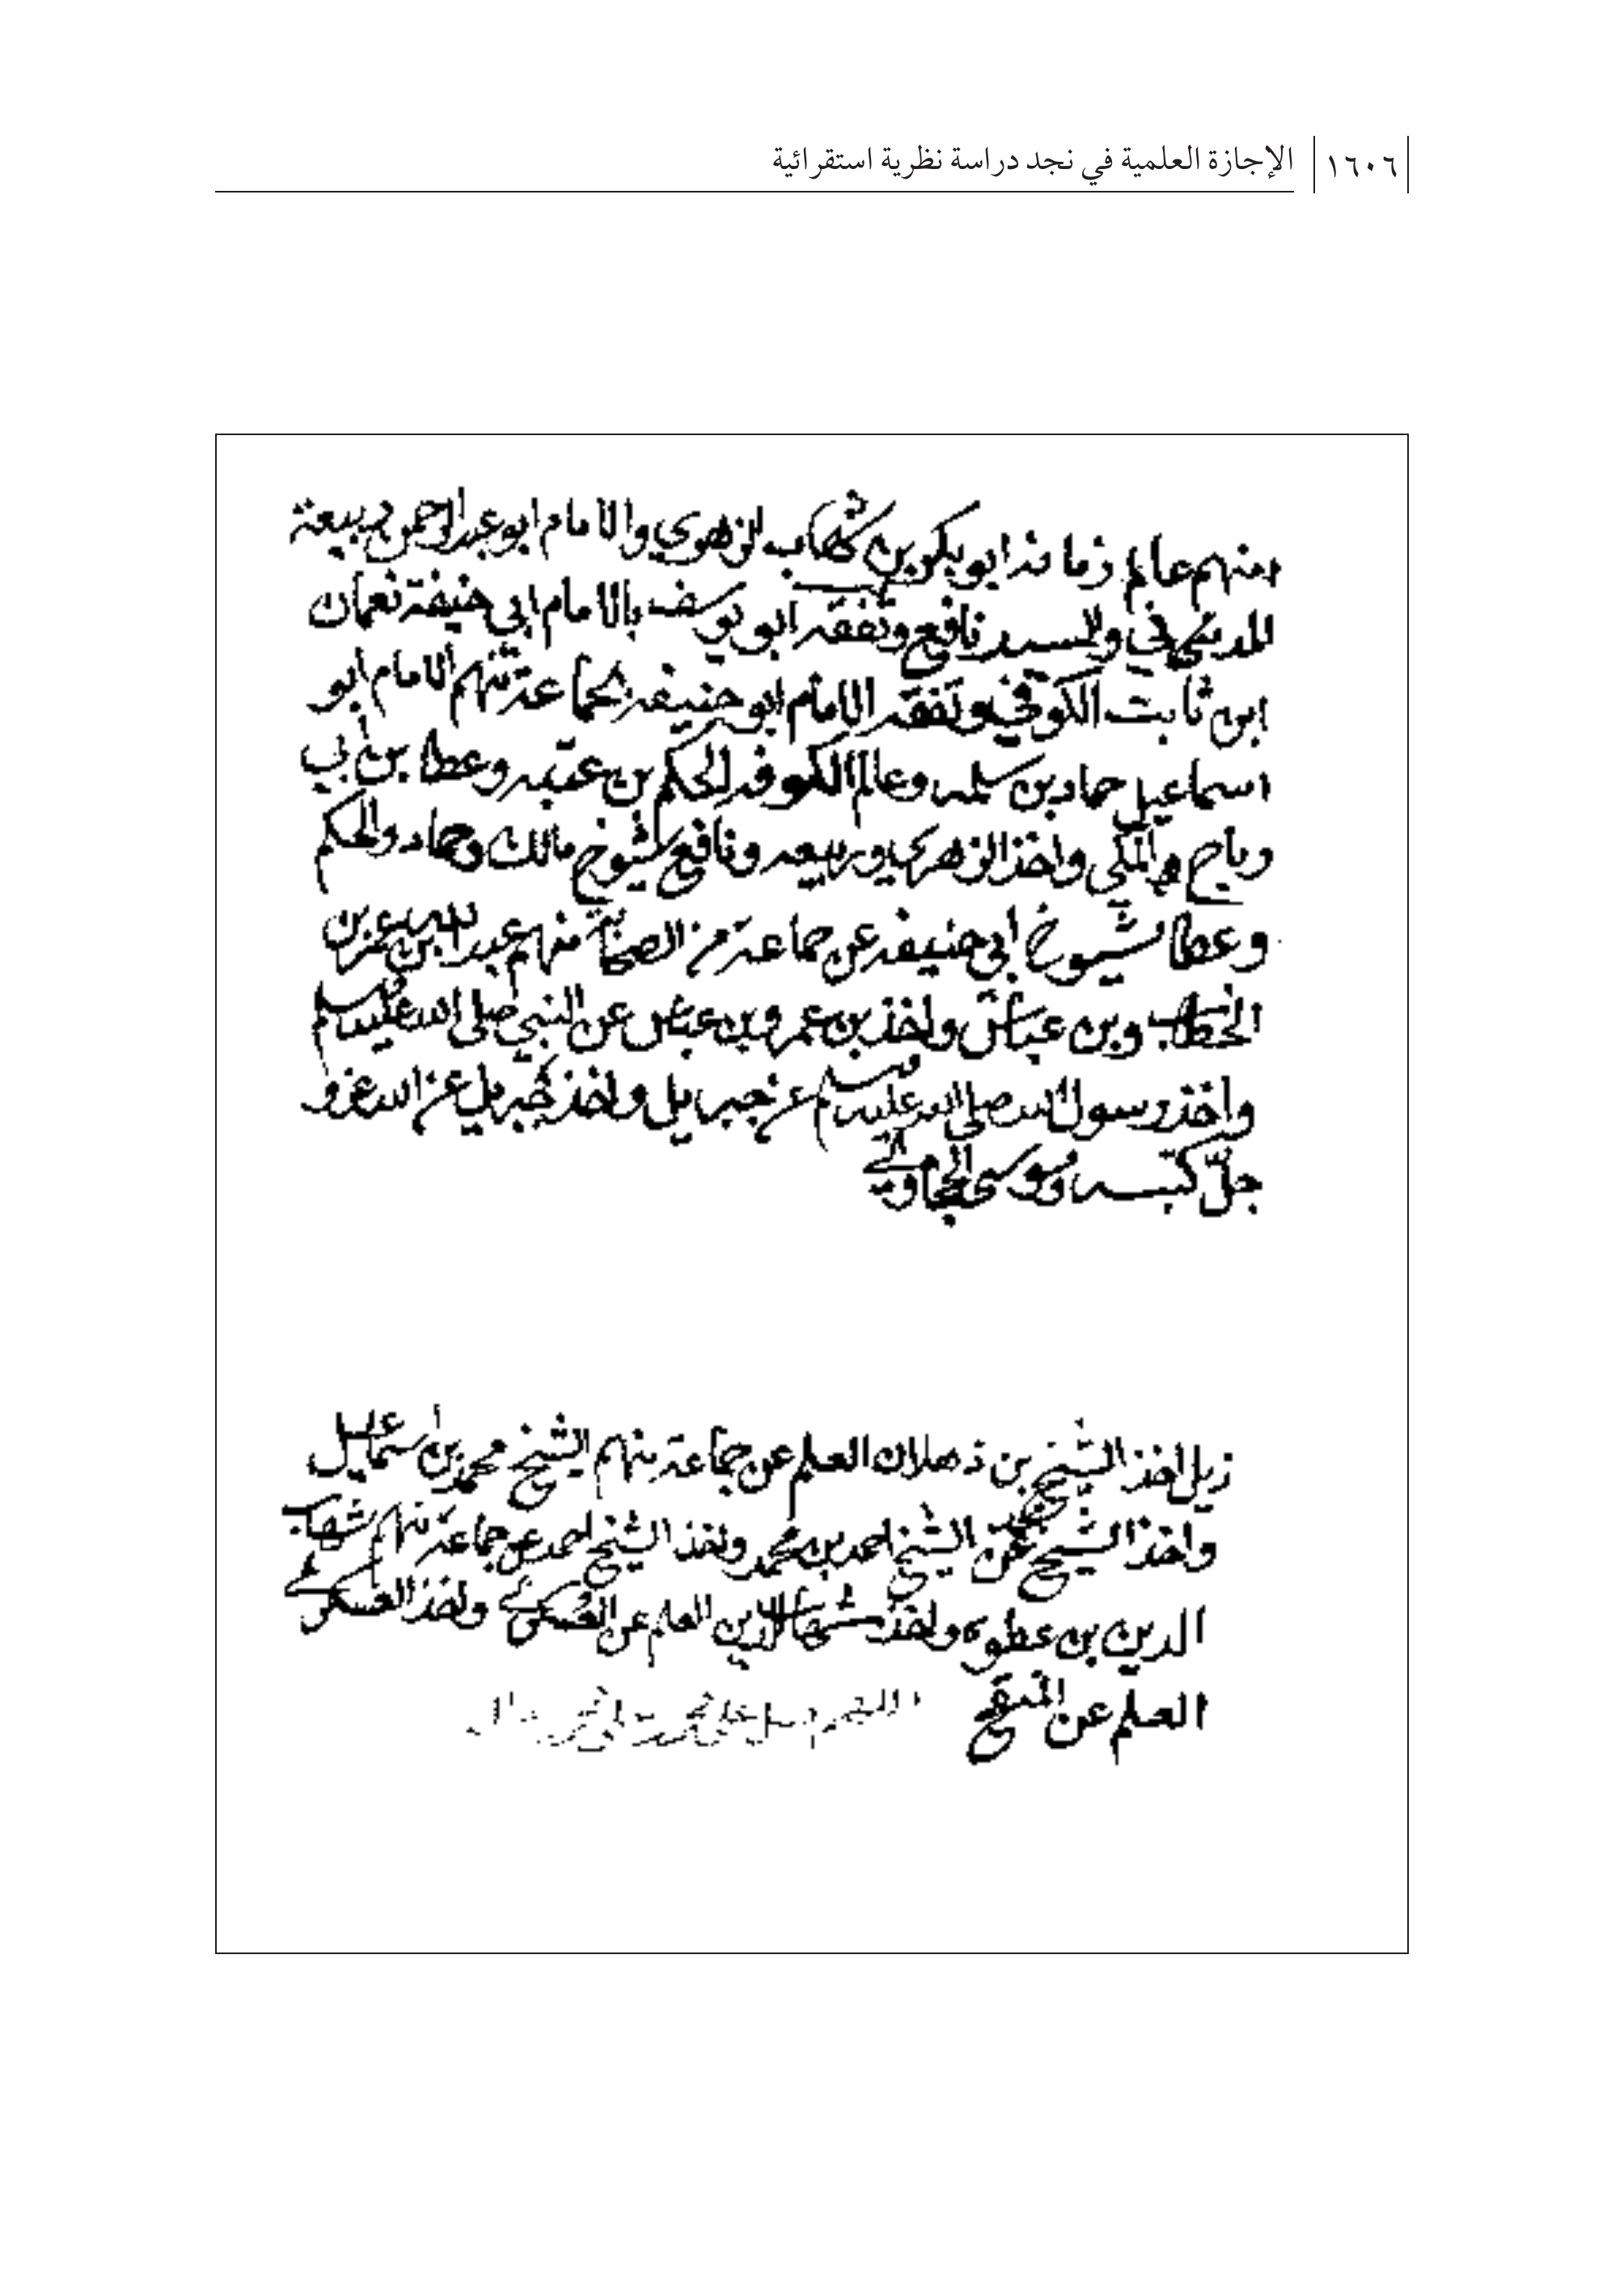 ١٦٠٦ الإجازة العلمية في نجد دراسة نظرية استقرائية
منهم عالم زمانه ابو بكر بن شهاب الزهري والامام ابو عبد الرحمن ربيعة
المدني والسيد نافع وتفقه ابو يوسف بالامام ابي حنيفة نعمان
ابن ثابت الكوفي وتفقه الامام ابو حنيفه بجماعة منهم الامام ابو
اسماعيل حماد بن سلمه وعالم الكوفه الحكم بن عتيبه وعطا بن أبي
رباح المكي واخذ الزهري وربيعه ونافع شيوخ مالك وحماد والحكم
وعطا شيوخ ابي حنيفه عن جماعة من الصحابة منهم عبد الله بن عمر بن
الخطاب وبن عباس واخذ بن عمر وبن عباس عن النبي صلى الله عليه وسلم
واخذ رسول الله صلى الله عليه وسلم عن جبريل واخذ جبريل عن الله عز و
جل كتبه موسى الحجاوي
اخذ الشيخ بن ذهلان العلم عن جماعة منهم الشيخ محمد بن أسماعيل
واخذ الشيخ عن الشيخ احمد بن محمد واخذ الشيخ احمد عن جماعة منهم شهاب
الدين بن عطوه واخذ شهاب الدين العلم عن العسكري واخذ العسكري
العلم عن المنقح